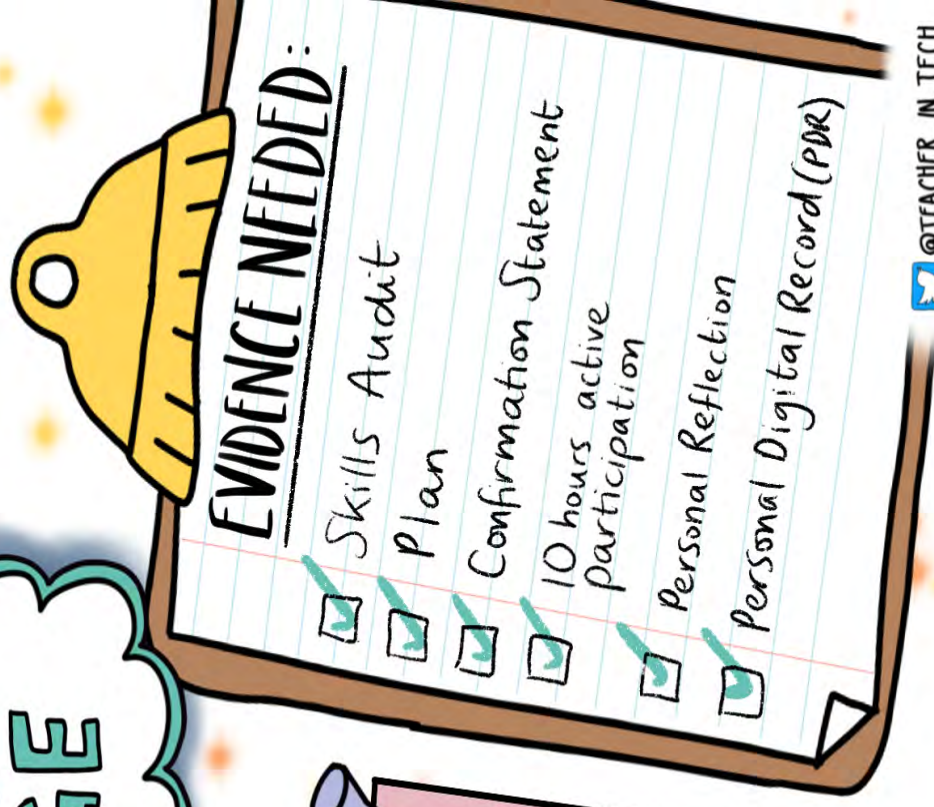 GE
EVIDENCE NEEDED:
Skills Audit
Plan
Confirmation Statement
10 hours active
participation
Personal Reflection
Personal Digital Record (PDR)
@TEACHER IN TECH